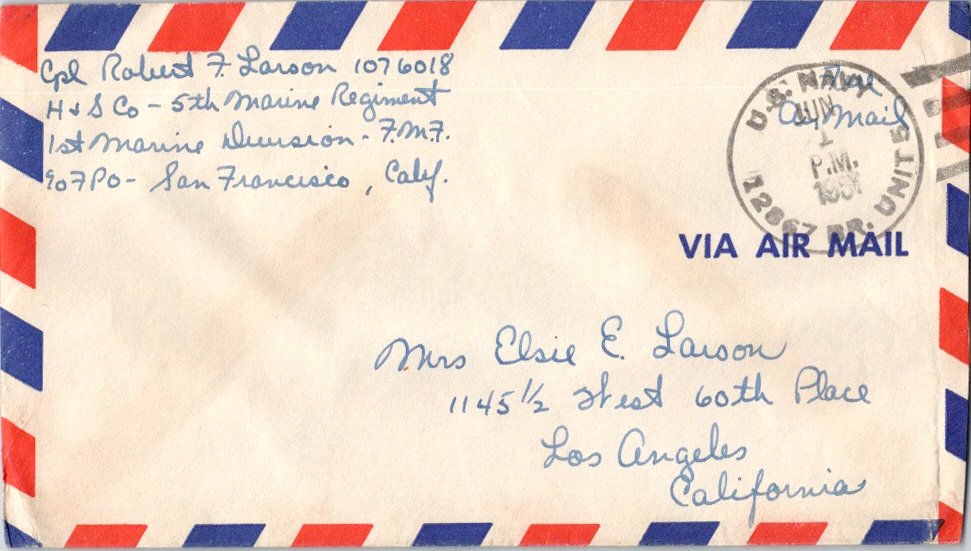 Cpl Robert F. Larson 1076018
H & S Co - 5th Marine Regiment
1st Marine Division - F.M.F.
℅ FPO - San Francisco, Calif.
Free
Air Mail
U.S. NAVY
JUN
1
P.M.
1951
12867 BR. UNIT 5
VIA AIR MAIL
Mrs Elsie E. Larson
1145 1/2 West 60th Place
Los Angeles
California